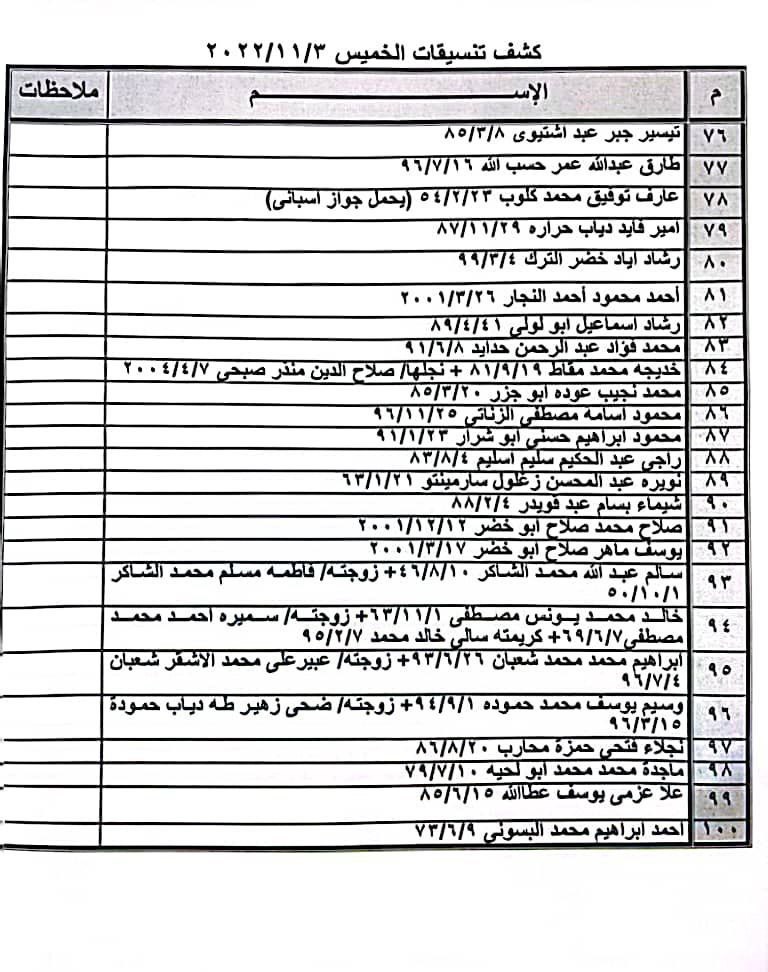 كشف تنسيقات الخميس ٢٠٢٢/١١/٣
م الإســـــــم ملاحظات
٧٦ تيسير جبر عبد اشتيوى ٨٥/٣/٨
٧٧ طارق عبدالله عمر حسب الله ٩٦/٧/١٦
٧٨ عارف توفيق محمد كلوب ٥٤/٢/٢٣ (يحمل جواز اسبانى)
٧٩ امير فايد دياب حراره ٨٧/١١/٢٩
٨٠ رشاد اياد خضر الترك ٩٩/٣/٤
٨١ أحمد محمود أحمد النجار ٢٠٠١/٣/٢٦
٨٢ رشاد اسماعيل ابو لولى ٨٩/٤/٤١
٨٣ محمد فؤاد عبد الرحمن حدايد ٩١/٦/٨
٨٤ خديجه محمد مقاط ٨١/٩/١٩ + نجلها/ صلاح الدين منذر صبحى ٢٠٠٤/٤/٧
٨٥ محمد نجيب عوده ابو جزر ٨٥/٣/٢٠
٨٦ محمود اسامة مصطفى الزناتى ٩٦/١١/٢٥
٨٧ محمود ابراهيم حسنى ابو شرار ٩١/١/٢٣
٨٨ راجى عبد الحكيم سليم اسليم ٨٣/٨/٤
٨٩ نويره عبد المحسن زغلول سارمينتو ٦٣/١/٢١
٩٠ شيماء بسام عبد قويدر ٨٨/٢/٤
٩١ صلاح محمد صلاح ابو خضر ٢٠٠١/١٢/١٢
٩٢ يوسف ماهر صلاح ابو خضر ٢٠٠١/٣/١٧
٩٣ سالم عبد الله محمد الشاكر ٤٦/٨/١٠+ زوجته/ فاطمه مسلم محمد الشاكر
٥٠/١٠/١
٩٤ خالد محمد يونس مصطفى ٦٣/١١/١+ زوجته/ سميره احمد محمد
مصطفى٦٩/٦/٧+ كريمته سالي خالد محمد ٩٥/٢/٧
٩٥ ابراهيم محمد محمد شعبان ٩٣/٦/٢٦+ زوجته/ عبيرعلى محمد الاشقر شعبان
٩٦/٧/٤
٩٦ وسيم يوسف محمد حموده ٩٤/٩/١+ زوجته/ ضحى زهير طه دياب حمودة
٩٦/٣/١٥
٩٧ نجلاء فتحى حمزة محارب ٨٦/٨/٢٠
٩٨ ماجدة محمد محمد ابو لحيه ٧٩/٧/١٠
٩٩ علا عزمى يوسف عطاالله ٨٥/٦/١٥
١٠٠ احمد ابراهيم محمد البسونى ٧٣/٦/٩